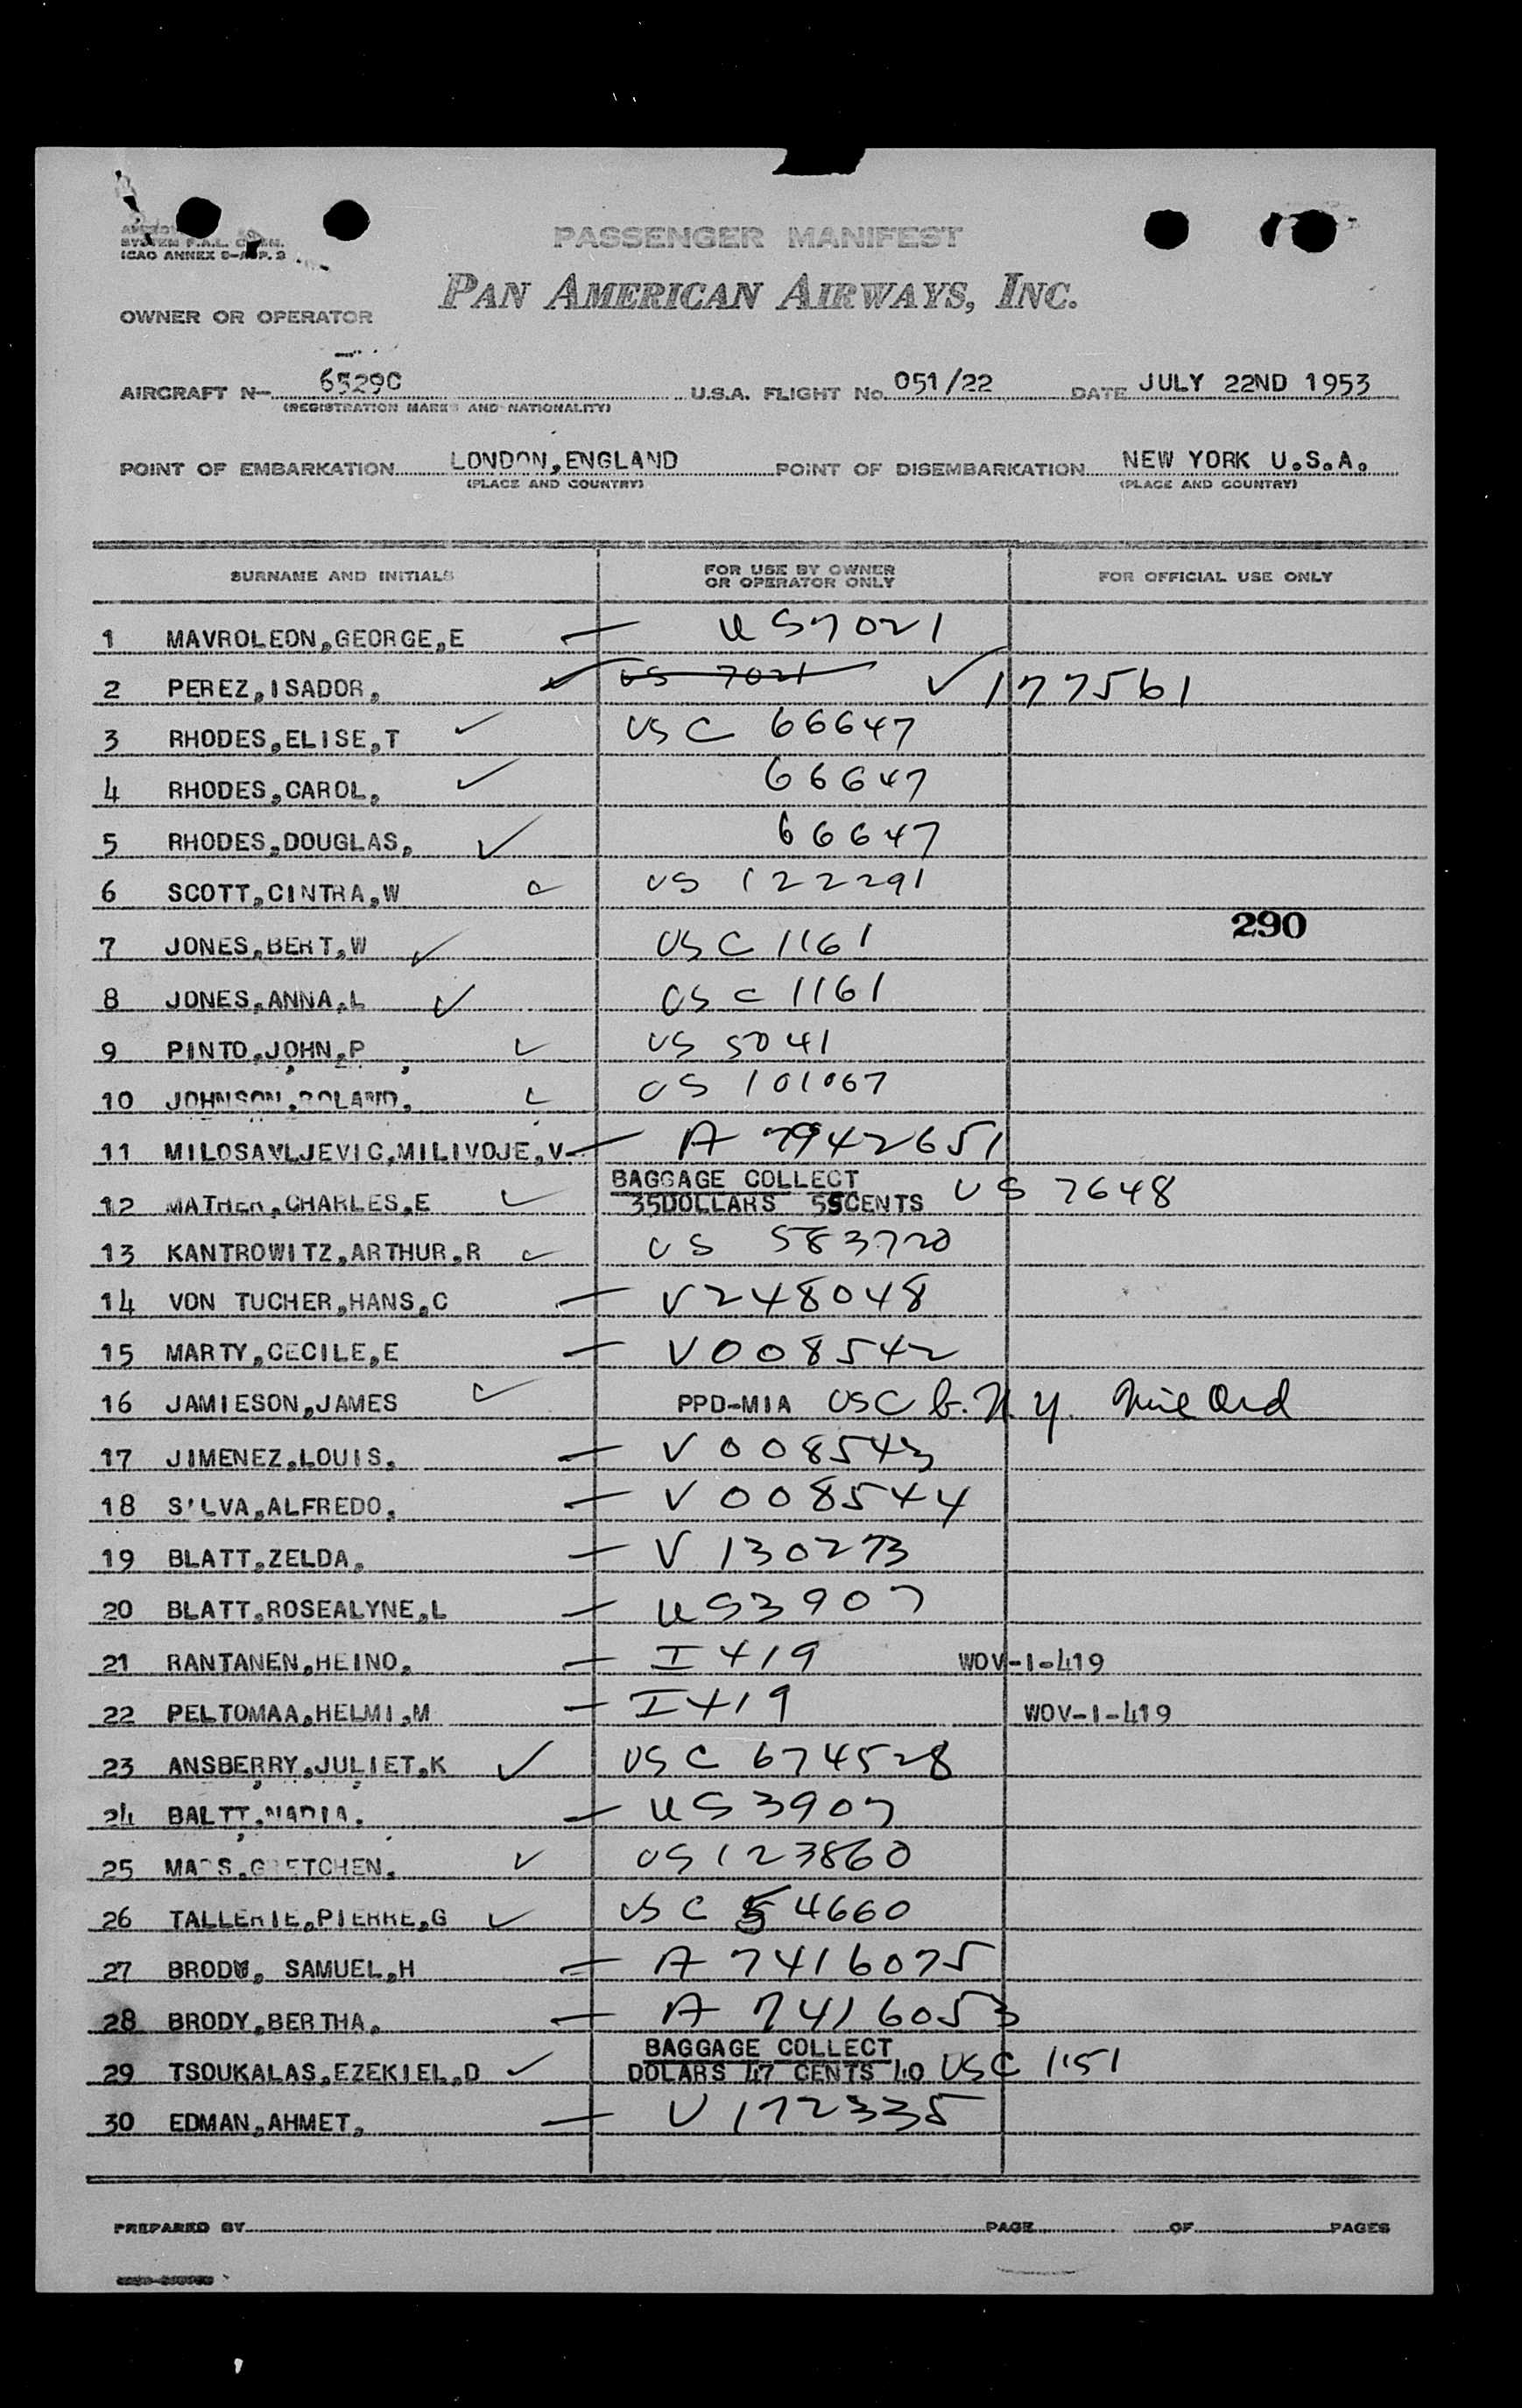 SYSTEM F.A.L. COMN.
ICAO ANNEX 9-APP. 3
PASSENGER MANIFEST
PAN AMERICAN AIRWAYS, INC.
OWNER OR OPERATOR
AIRCRAFT N- 65290 U.S.A. FLIGHT No. 051/22 DATE JULY 22ND 1953
(REGISTRATION MARKS AND NATIONALITY)
POINT OF EMBARKATION LONDON, ENGLAND POINT OF DISEMBARKATION NEW YORK U.S.A.
(PLACE AND COUNTRY) (PLACE AND COUNTRY)
SURNAME AND INITIALS FOR USE BY OWNER OR OPERATOR ONLY FOR OFFICIAL USE ONLY
1 MAVROLEON,GEORGE,E — US7021
2 PEREZ,ISADOR, ✓ US 7021 ✓ 177561
3 RHODES,ELISE,T ✓ USC 66647
4 RHODES,CAROL, ✓ 66647
5 RHODES,DOUGLAS, ✓ 66647
6 SCOTT,CINTRA,W ✓ US 122291
290
7 JONES,BERT,W ✓ USC 1161
8 JONES,ANNA,L ✓ USC 1161
9 PINTO,JOHN,P ✓ US 5041
10 JOHNSON,ROLAND, ✓ US 101067
11 MILOSAVLJEVIC,MILIVOJE,V — A 7942651
12 MATHER,CHARLES,E ✓ BAGGAGE COLLECT 35DOLLARS 55CENTS US 7648
13 KANTROWITZ,ARTHUR,R ✓ US 583720
14 VON TUCHER,HANS,C — V248048
15 MARTY,CECILE,E — V008542
16 JAMIESON,JAMES ✓ PPD-MIA USC b. N.Y.
17 JIMENEZ,LOUIS, — V008543
18 S'LVA,ALFREDO, — V008544
19 BLATT,ZELDA, — V 130273
20 BLATT,ROSEALYNE,L — US3907
21 RANTANEN,HEINO, — I 419 WOV-I-419
22 PELTOMAA,HELMI,M — I419 WOV-I-419
23 ANSBERRY,JULIET,K ✓ USC 674528
24 BALTT,NADIA, — US3907
25 MARS,GRETCHEN, ✓ US123860
26 TALLERIE,PIERRE,G ✓ USC 54660
27 BRODY, SAMUEL,H — A 7416075
28 BRODY,BERTHA, — A 7416053
29 TSOUKALAS,EZEKIEL,D ✓ BAGGAGE COLLECT DOLARS 47 CENTS 40 USC 1151
30 EDMAN,AHMET, — V172335
PREPARED BY PAGE OF PAGES